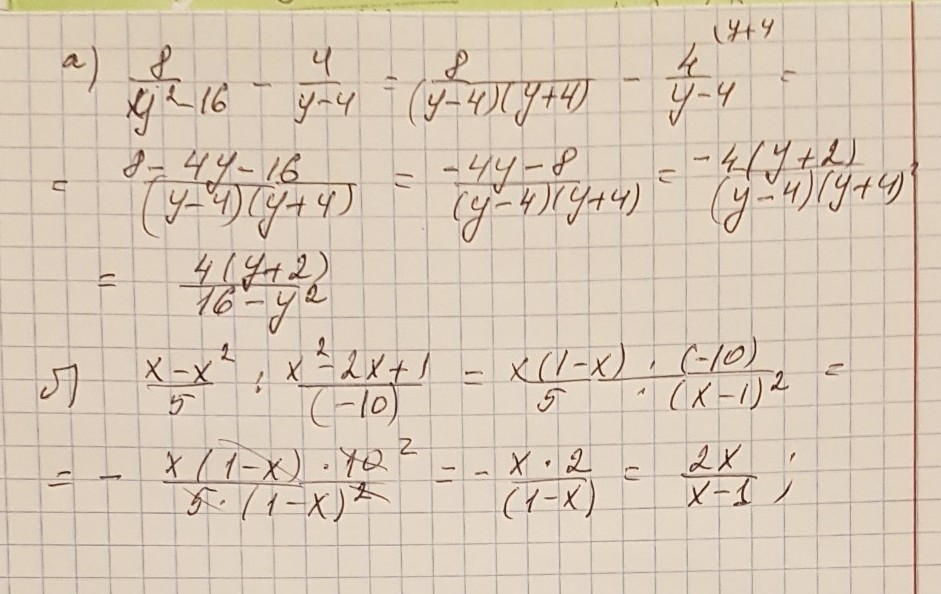 а) 8/(y²-16) - 4/(y-4) = 8/((y-4)(y+4)) - 4/(y-4) (y+4 =
= (8-4y-16)/((y-4)(y+4)) = (-4y-8)/((y-4)(y+4)) = -4(y+2)/((y-4)(y+4))
= 4(y+2)/(16-y²)
б) (x-x²)/5 : (x²-2x+1)/(-10) = x(1-x)/5 · (-10)/(x-1)² =
= - (x(1-x)·10²)/(5·(1-x)²) = - (x·2)/(1-x) = 2x/(x-1) ;